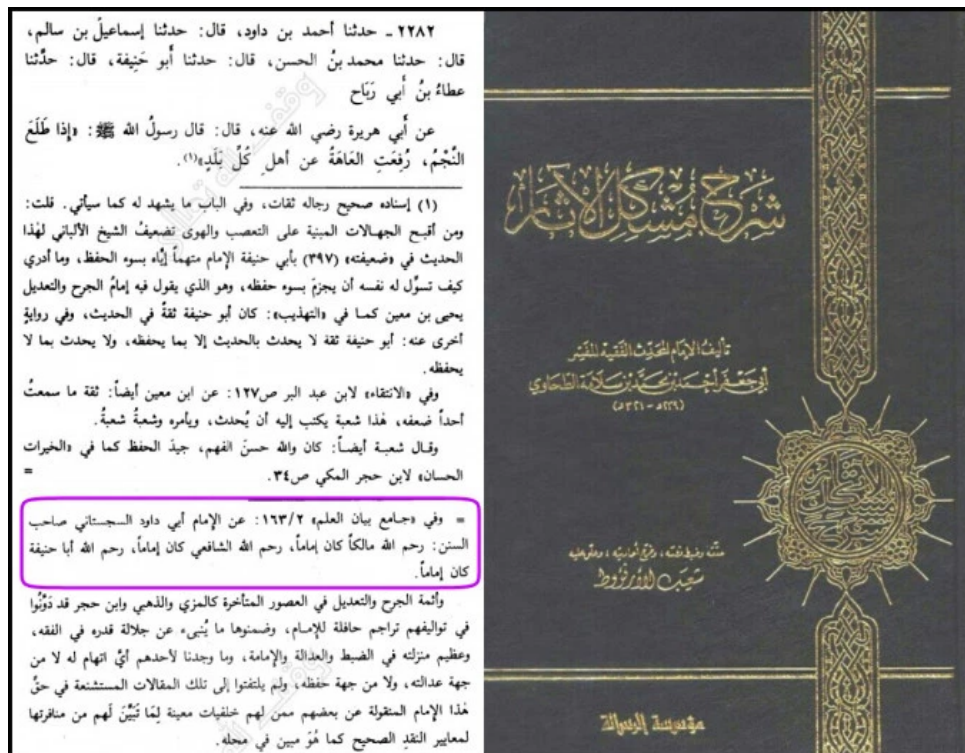 ٢٢٨٢ - حدثنا أحمد بن داود، قال: حدثنا إسماعيلُ بن سالم،
قال: حدثنا محمد بنُ الحسن، قال: حدثنا أبو حَنِيفة، قال: حدَّثنا
عطاءُ بنُ أبي رَبَاح
عن أَبي هريرة رضي الله عنه، قال: قال رسولُ الله ﷺ: «إِذا طَلَعَ
النَّجْمُ، رُفِعَتِ العَاهَةُ عن أهلِ كُلِّ بَلَدٍ»(١).
(١) إسناده صحيح رجاله ثقات، وفي الباب ما يشهد له كما سيأتي. قلت:
ومن أقبح الجهالات المبنية على التعصب والهوى تضعيفُ الشيخ الألباني لهٰذا
الحديث في «ضعيفته» (٣٩٧) بأبي حنيفة الإمام متهماً إيَّاه بسوء الحفظ، وما أدري
كيف تسوِّل له نفسه أن يجزمَ بسوء حفظه، وهو الذي يقول فيه إمامُ الجرح والتعديل
يحيى بن معين كما في «التهذيب»: كان أبو حنيفة ثقةً في الحديث، وفي روايةٍ
أخرى عنه: أبو حنيفة ثقة لا يحدث بالحديث إلا بما يحفظه، ولا يحدث بما لا
يحفظه.
وفي «الانتقاء» لابن عبد البر ص١٢٧: عن ابن معين أيضاً: ثقة ما سمعتُ
أحداً ضعفه، هٰذا شعبة يكتب إليه أن يُحدث، ويأمره وشعبةُ شعبةُ.
وقال شعبة أيضاً: كان والله حسنَ الفهم، جيدَ الحفظ كما في «الخيرات
الحسان» لابن حجر المكي ص٣٤. =
= وفي «جامع بيان العلم» ١٦٣/٢: عن الإمام أبي داود السجستاني صاحب
السنن: رحم الله مالكاً كان إماماً، رحم الله الشافعي كان إماماً، رحم الله أبا حنيفة
كان إماماً.
وأئمة الجرح والتعديل في العصور المتأخرة كالمزي والذهبي وابن حجر قد دَوَّنُوا
في تواليفهم تراجم حافلة للإمام، وضمنوها ما يُنبىء عن جلالة قدره في الفقه،
وعظيم منزلته في الضبط والعدالة والإمامة، وما وجدنا لأحدهم أيَّ اتهام له لا من
جهة عدالته، ولا من جهة حفظه، ولم يلتفتوا إلى تلك المقالات المستشنعة في حقِّ
هٰذا الإمام المنقولة عن بعضهم ممن لهم خلفيات معينة لِمَا تَبَيَّنَ لَهم من منافرتها
لمعايير النقدِ الصحيح كما هُوَ مبين في محله.
شرح مشكل الآثار
تأليف الإمام المحدث الفقيه المفسر
أبي جعفر أحمد بن محمد بن سلامة الطحاوي
(٢٣٩هـ - ٣٢١هـ)
حققه وضبط نصه، وخرج أحاديثه، وعلق عليه
شعيب الأرنؤوط
مؤسسة الرسالة